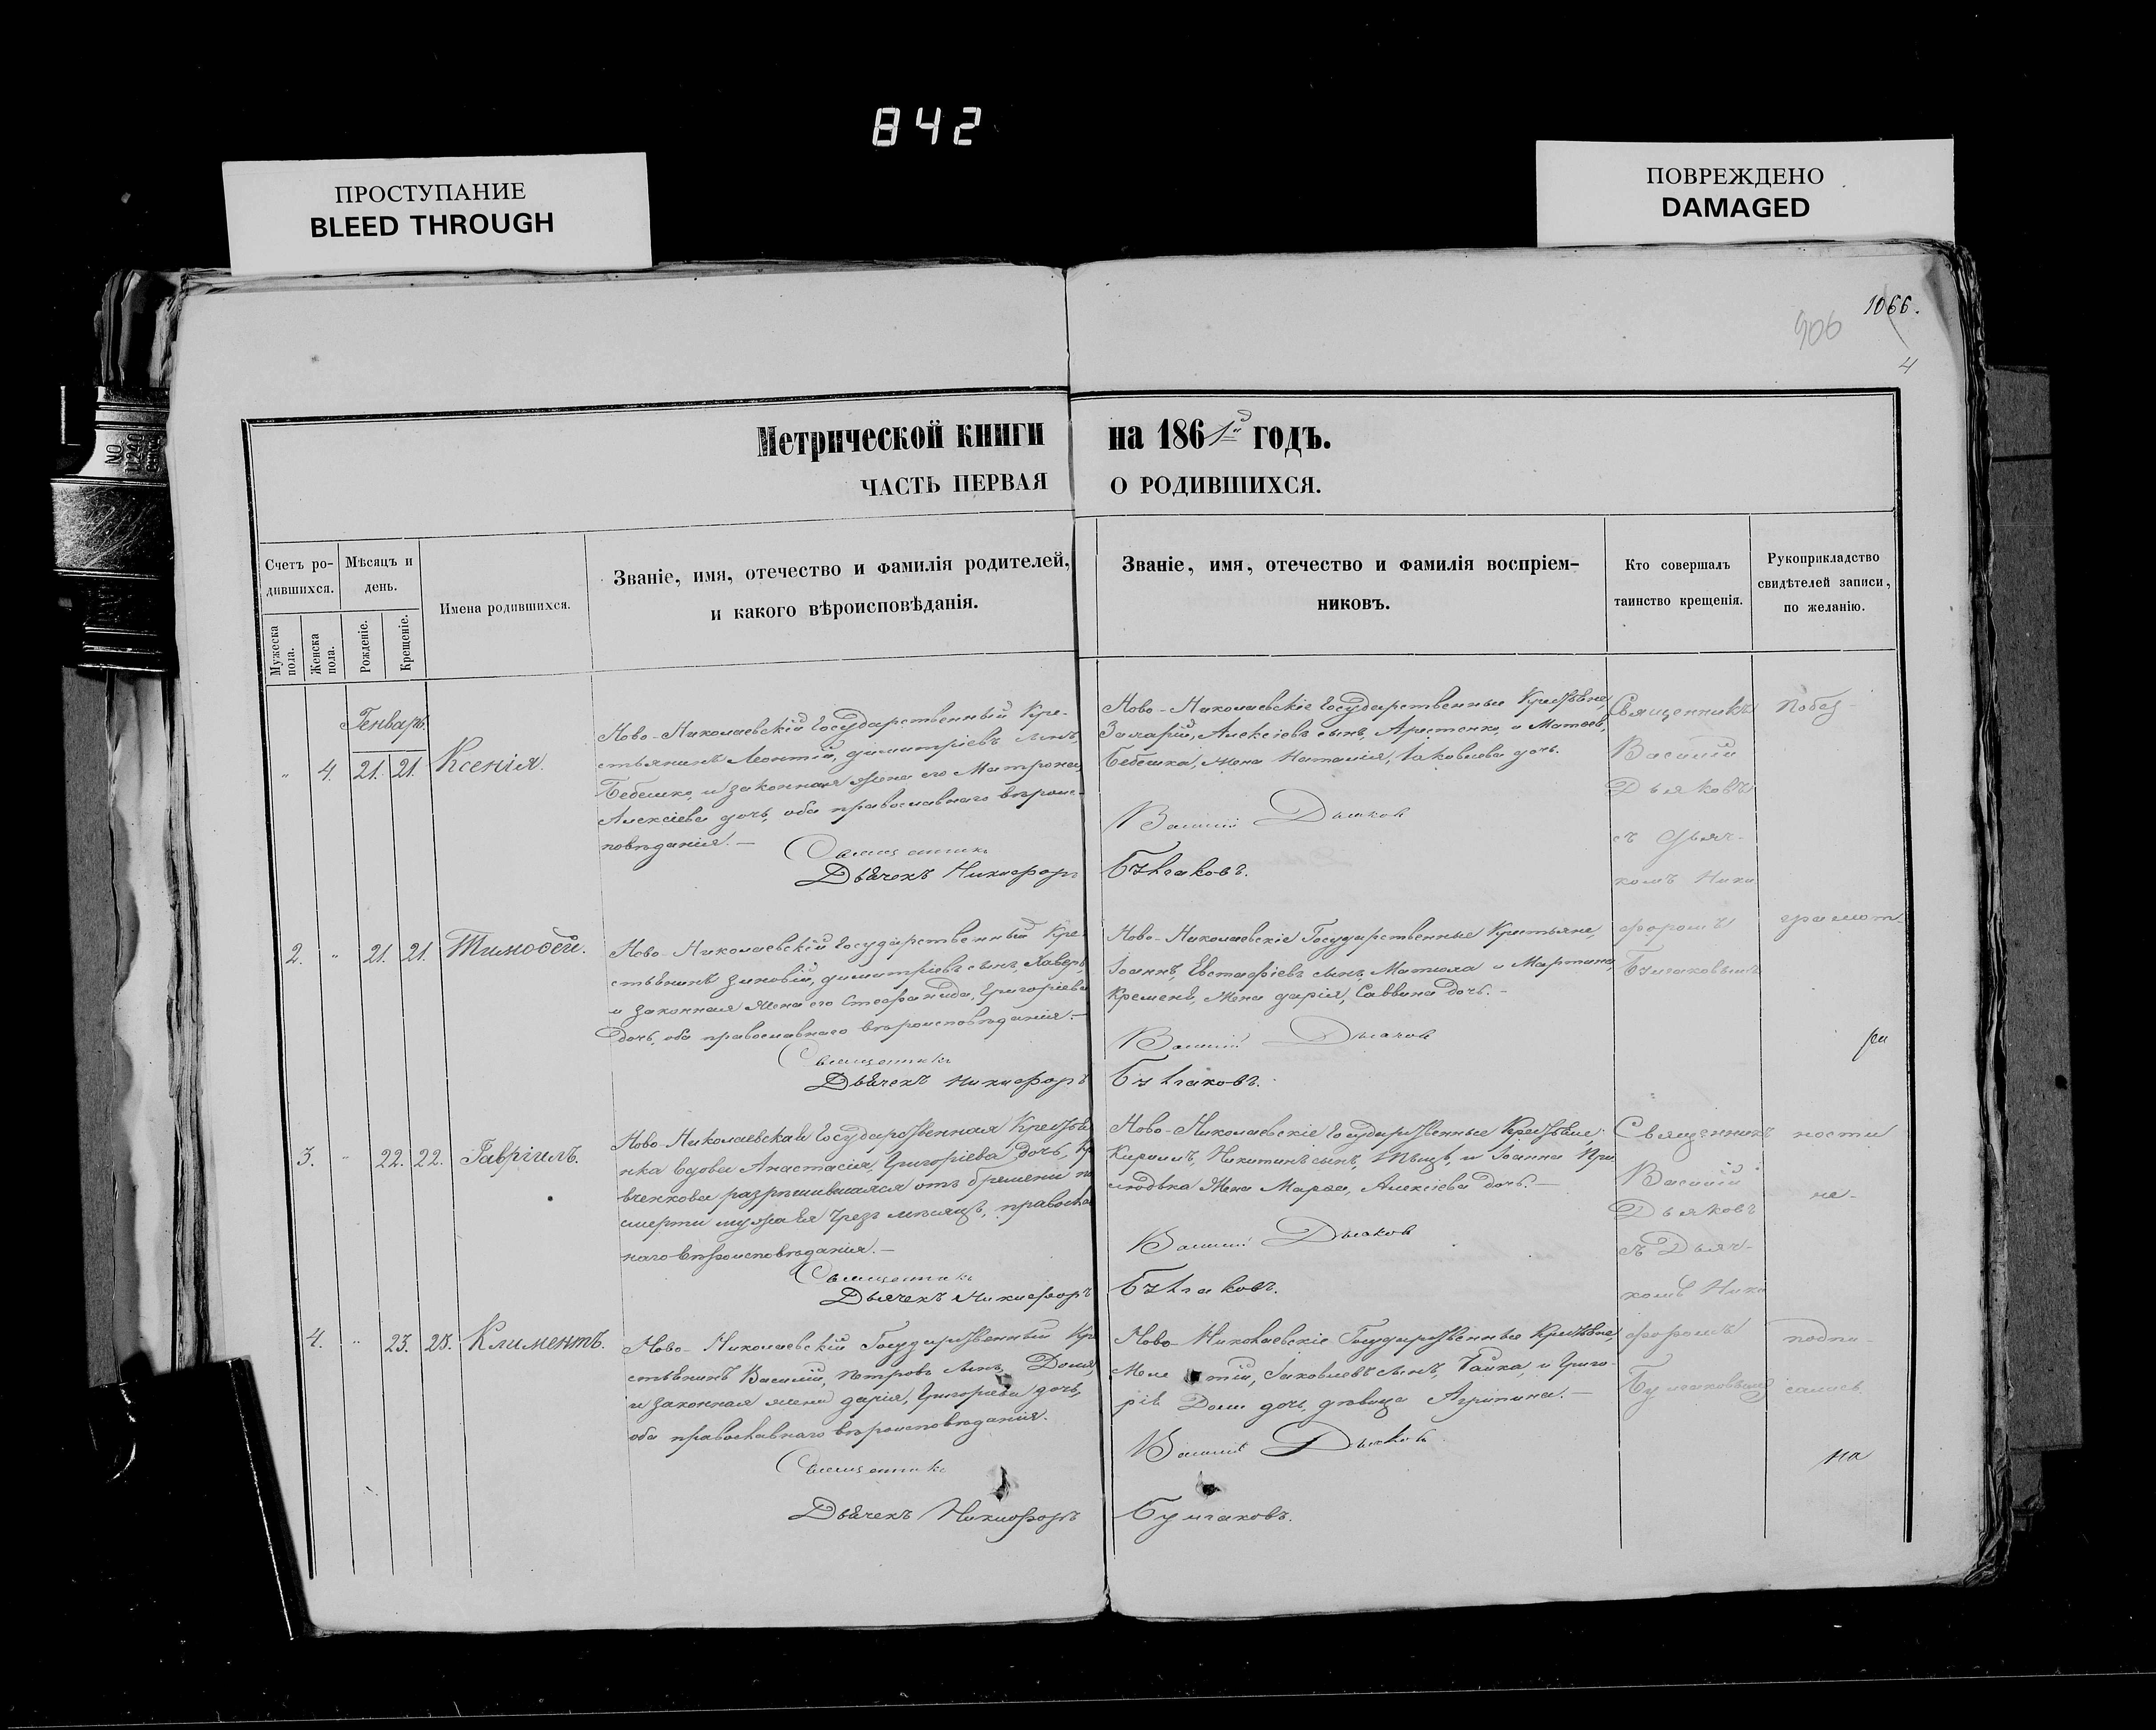 842
ПРОСТУПАНИЕ
BLEED THROUGH
ПОВРЕЖДЕНО
DAMAGED
1066.
906
4
Метрической книги на 1861й годъ.
ЧАСТЬ ПЕРВАЯ О РОДИВШИХСЯ.
Счетъ ро-
дившихся.
Мужеска
пола.
Женска
пола.
Мѣсяцъ и
день.
Рожденіе.
Крещеніе.
Имена родившихся.
Званіе, имя, отечество и фамилія родителей,
и какого вѣроисповѣданія.
Званіе, имя, отечество и фамилія воспріем-
никовъ.
Кто совершалъ
таинство крещенія.
Рукоприкладство
свидѣтелей записи,
по желанію.
Генварь.
" 4. 21. 21. Ксенія.
Ново-Николаевскій Государственный Кре-
стьянинъ Леонтій, димитріевъ сынъ,
Бебешко, и законная жена его Матрона,
Алексіева дочь, оба православнаго вѣроис-
повѣданія.—
Ново-Николаевскіе Государственные Крестьяне,
Захарій, Алексіевъ сынъ, и
Бебешка, жена Наталія, Іаковлева дочь.
Священникъ Василій Дьяковъ
Дьячекъ Никифоръ Булгаковъ.
Священникъ
Василій
Дьяковъ
съ Дьяч-
комъ Ники
форомъ
Булгаковымъ
2. " 21. 21. Тимофей.
Ново-Николаевскій Государственный Кре-
стьянинъ Зиновій, димитріевъ сынъ,
и законная жена его Стефанида, Григоріева
дочь, оба православнаго вѣроисповѣданія.—
Ново-Николаевскіе Государственные Крестьяне,
Іоаннъ, Евстафіевъ сынъ, и Мартина,
Кремень, жена дарія, Саввина дочь.—
Священникъ Василій Дьяковъ
Дьячекъ Никифоръ Булгаковъ.
3. " 22. 22. Гавріилъ.
Ново-Николаевская Государственная Крестья
нка вдова Анастасія, Григоріева дочь,
разрѣшившаяся отъ бремени по
смерти мужа ея чрезъ мѣсяцъ, православ
наго вѣроисповѣданія.—
Ново-Николаевскіе Государственные Крестьяне,
Кириллъ, Никитинъ сынъ, и Іоанна При
жена Марфа, Алексіева дочь.—
Священникъ Василій Дьяковъ
Дьячекъ Никифоръ Булгаковъ.
Священникъ
Василій
Дьяковъ
съ Дьяч-
комъ Ники
форомъ
Булгаковымъ
4. " 23. 23. Климентъ.
Ново-Николаевскій Государственный Кре
стьянинъ Василій, Петровъ сынъ,
и законная жена дарія, Григоріева дочь,
оба православнаго вѣроисповѣданія.
Ново-Николаевскіе Государственные Крестьяне,
Меле тій, Іаковлевъ сынъ, и Григо-
рія дочь, дѣвица Агрипина.—
Священникъ Василій Дьяковъ
Дьячекъ Никифоръ Булгаковъ.
ности
не-
подпи
на